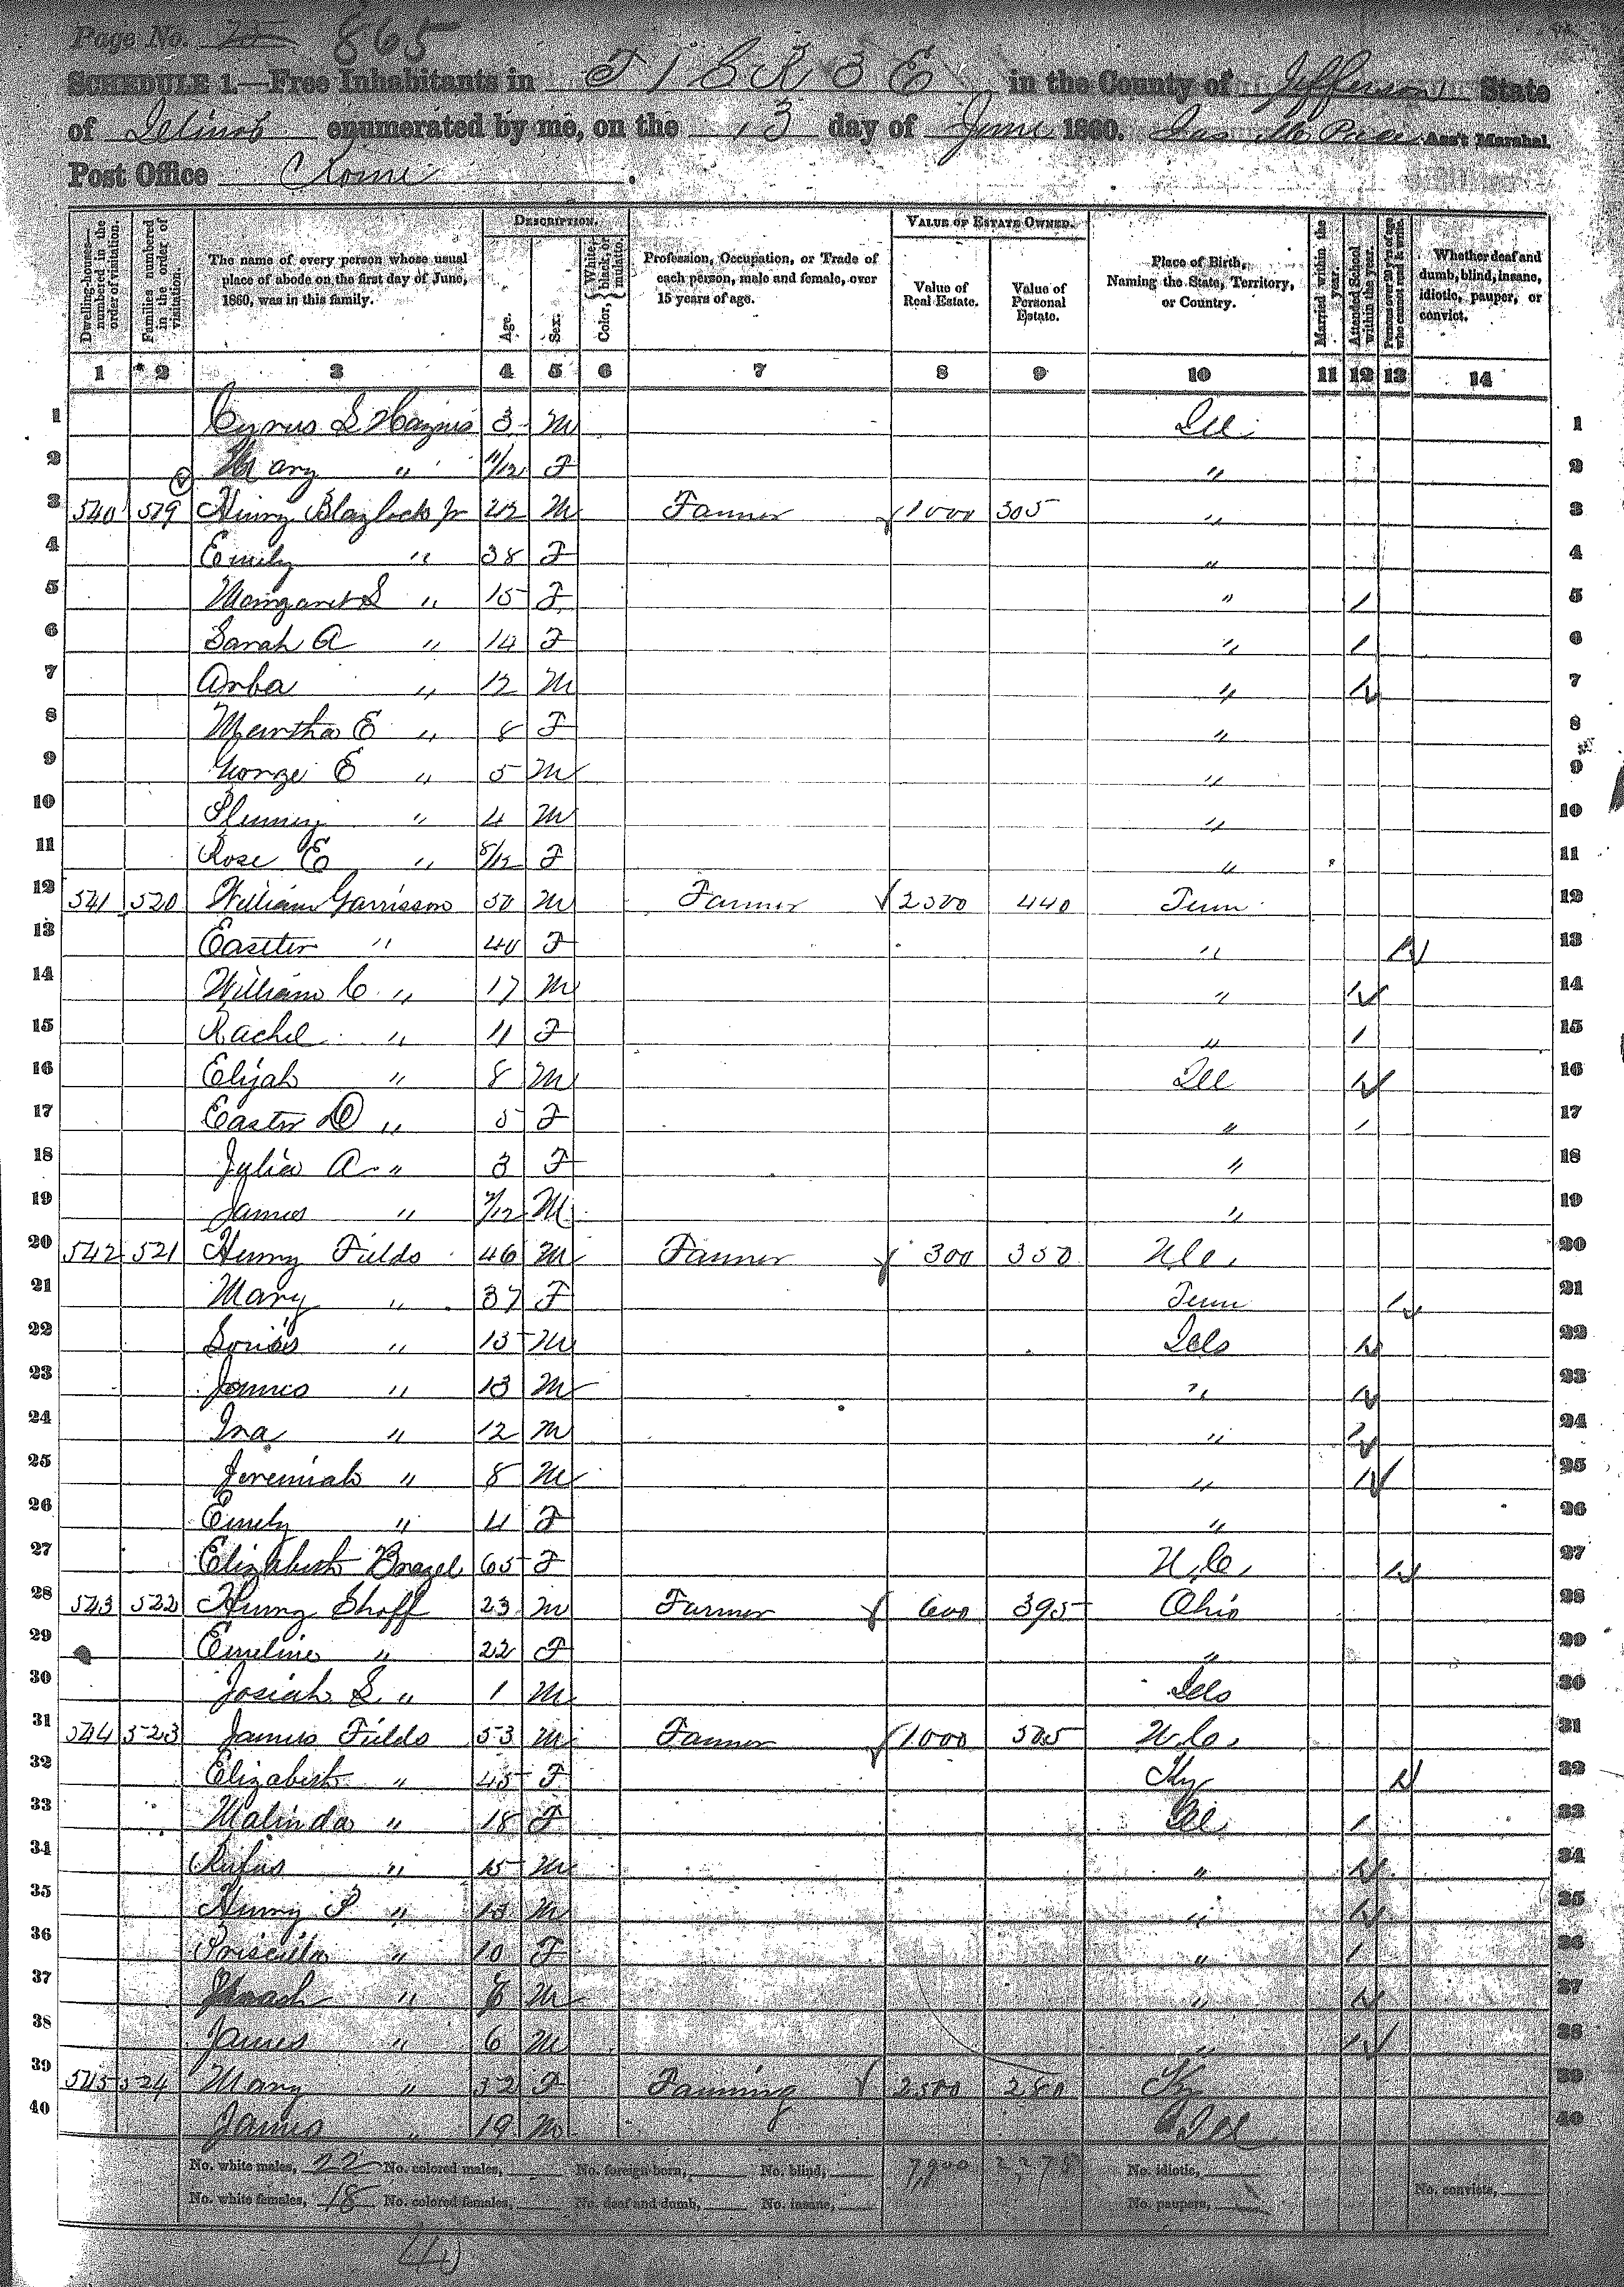 Page No. 25 865
SCHEDULE 1.—Free Inhabitants in T 1 S R 3 E in the County of Jefferson State
of Illinois enumerated by me, on the 13 day of June 1860. Ass't Marshal.
Post Office Rome.
Dwelling-houses—numbered in the order of visitation.
Families numbered in the order of visitation.
The name of every person whose usual place of abode on the first day of June, 1860, was in this family.
DESCRIPTION.
Age.
Sex.
Color, {White, black, or mulatto.
Profession, Occupation, or Trade of each person, male and female, over 15 years of age.
VALUE OF ESTATE OWNED.
Value of Real Estate.
Value of Personal Estate.
Place of Birth, Naming the State, Territory, or Country.
Married within the year.
Attended School within the year.
Persons over 20 y'rs of age who cannot read & write.
Whether deaf and dumb, blind, insane, idiotic, pauper, or convict.
1 2 3 4 5 6 7 8 9 10 11 12 13 14
1 Cyrus S Haynes 3 M Ill. 1
2 Mary " 11/12 F " 2
3 540 519 Henry Blaylock Jr M Farmer 1000 305 " 3
4 Emily " 38 F " 4
5 Margaret S " 15 F " 1 5
6 Sarah A " 14 F " 1 6
7 Arba " 12 M " 1 7
8 Martha E " 8 F " 8
9 George E " 5 M " 9
10 " 4 M " 10
11 Rose E " 8/12 F " 11
12 541 520 William Garrisson 50 M Farmer 440 Tenn 12
13 Easter " 40 F " 1 13
14 William C " 17 M " 1 14
15 Rachel " 11 F " 1 15
16 Elijah " 8 M Ill 1 16
17 Easter D " 5 F " 1 17
18 Julia A " 3 F " 18
19 James " M " 19
20 542 521 Henry Fields 46 M Farmer 300 350 N C. 20
21 Mary " 37 F Tenn 1 21
22 Louis " 15 M Ills 1 22
23 James " 13 M " 1 23
24 Ira " 12 M " 1 24
25 Jeremiah " 8 M " 1 25
26 Emily " 4 F " 26
27 Elizabeth Brazel 65 F N. C. 1 27
28 543 522 Henry Shoff 23 M Farmer 600 395 Ohio 28
29 Emeline " 22 F " 29
30 Josiah S. " 1 M Ills 30
31 544 523 James Fields 53 M Farmer 1000 505 N. C. 31
32 Elizabeth " 45 F Ky 1 32
33 Malinda " 18 F Ill 1 33
34 Rufus " 15 M " 1 34
35 Henry P " 13 M " 1 35
36 Priscilla " 10 F " 1 36
37 " 8 M " 1 37
38 James " 6 M " 1 38
39 545 524 Mary " 32 F Farming 2500 280 Ky 39
40 James " 19 M Ill 40
No. white males, 22 No. colored males, No. foreign born, No. blind, 7,900 2,275 No. idiotic,
No. white females, 18 No. colored females, No. deaf and dumb, No. insane, No. paupers, No. convicts,